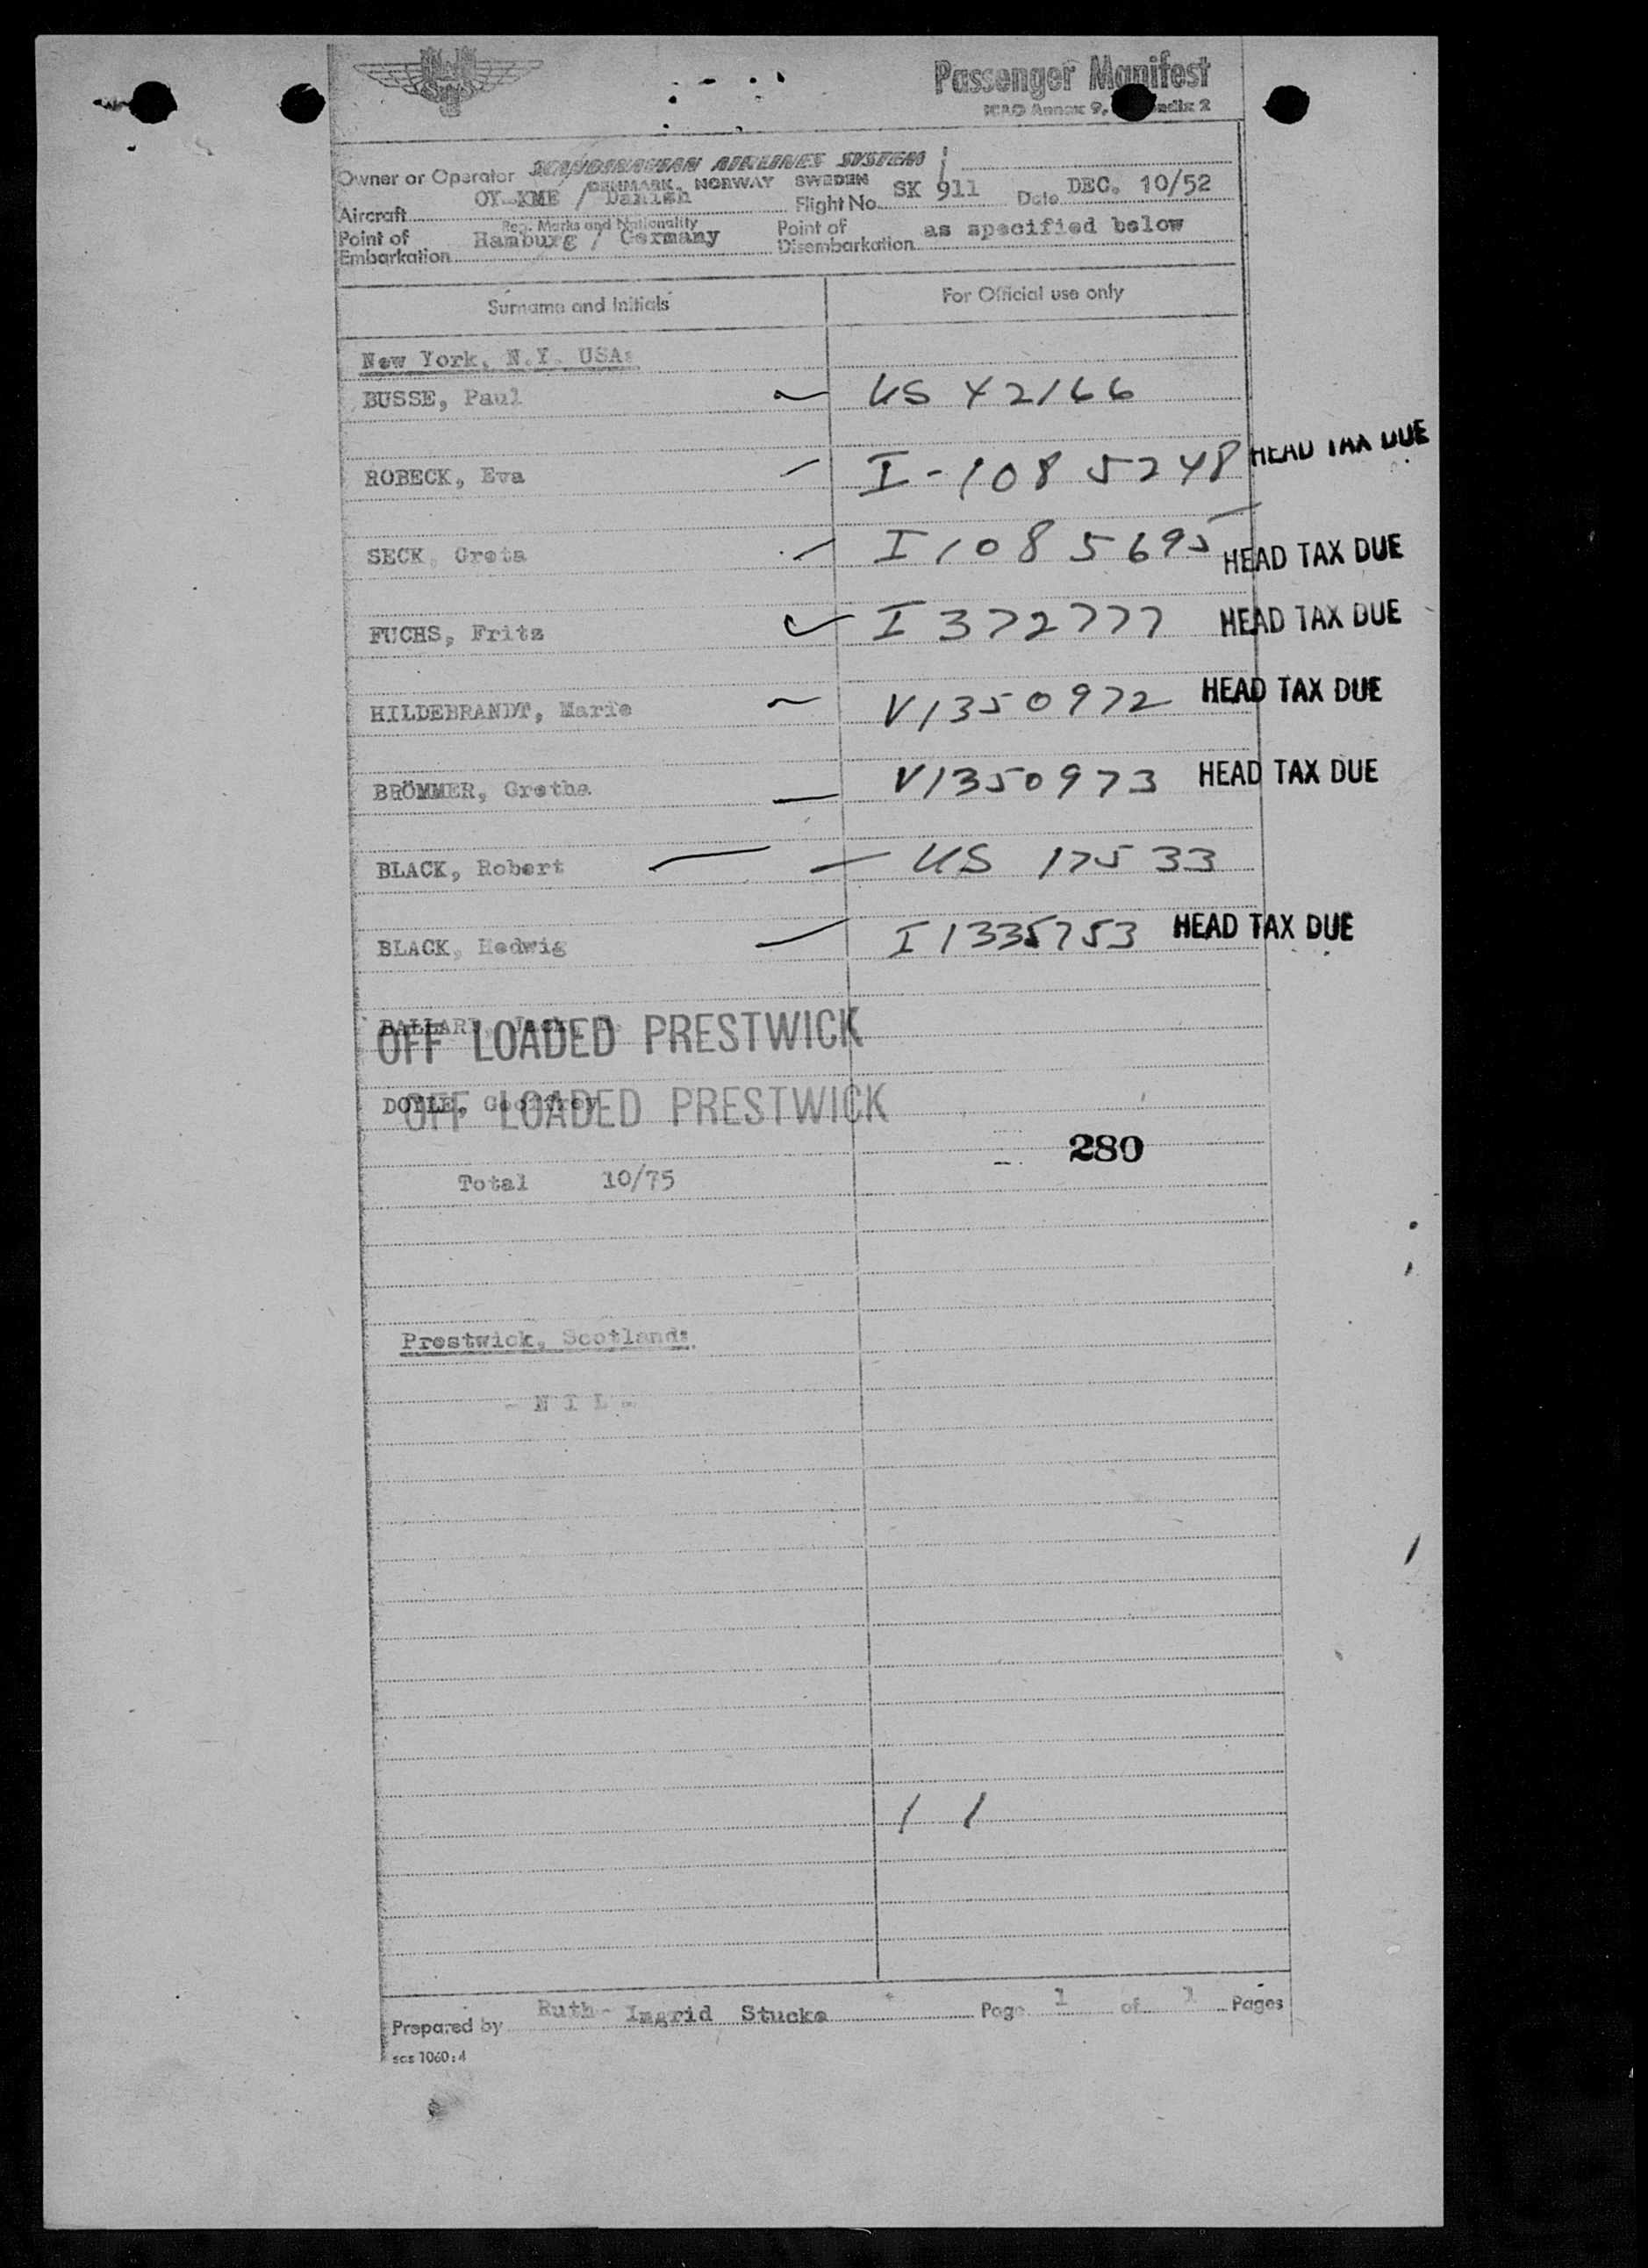 Passenger Manifest
ICAO Annex 9, Appendix 2
Owner or Operator SCANDINAVIAN AIRLINES SYSTEM
DENMARK, NORWAY SWEDEN
Aircraft OY-KME / Danish Flight No. SK 911 Date DEC. 10/52
Reg. Marks and Nationality
Point of Embarkation Hamburg / Germany Point of Disembarkation as specified below
Surname and Initials For Official use only
New York, N.Y. USA:
BUSSE, Paul US 42166
ROBECK, Eva I-1085248 HEAD TAX DUE
SECK, Greta I 1085695 HEAD TAX DUE
FUCHS, Fritz I 372777 HEAD TAX DUE
HILDEBRANDT, Marie V1350972 HEAD TAX DUE
BRÖMMER, Grethe V1350973 HEAD TAX DUE
BLACK, Robert US 17533
BLACK, Hedwig I 1335753 HEAD TAX DUE
BALLARD,
OFF LOADED PRESTWICK
DOYLE, Geoffrey
OFF LOADED PRESTWICK
280
Total 10/75
Prestwick, Scotland:
- N I L -
1 1
Prepared by Ruth- Ingrid Stucke Page 1 of 1 Pages
sas 1060:4